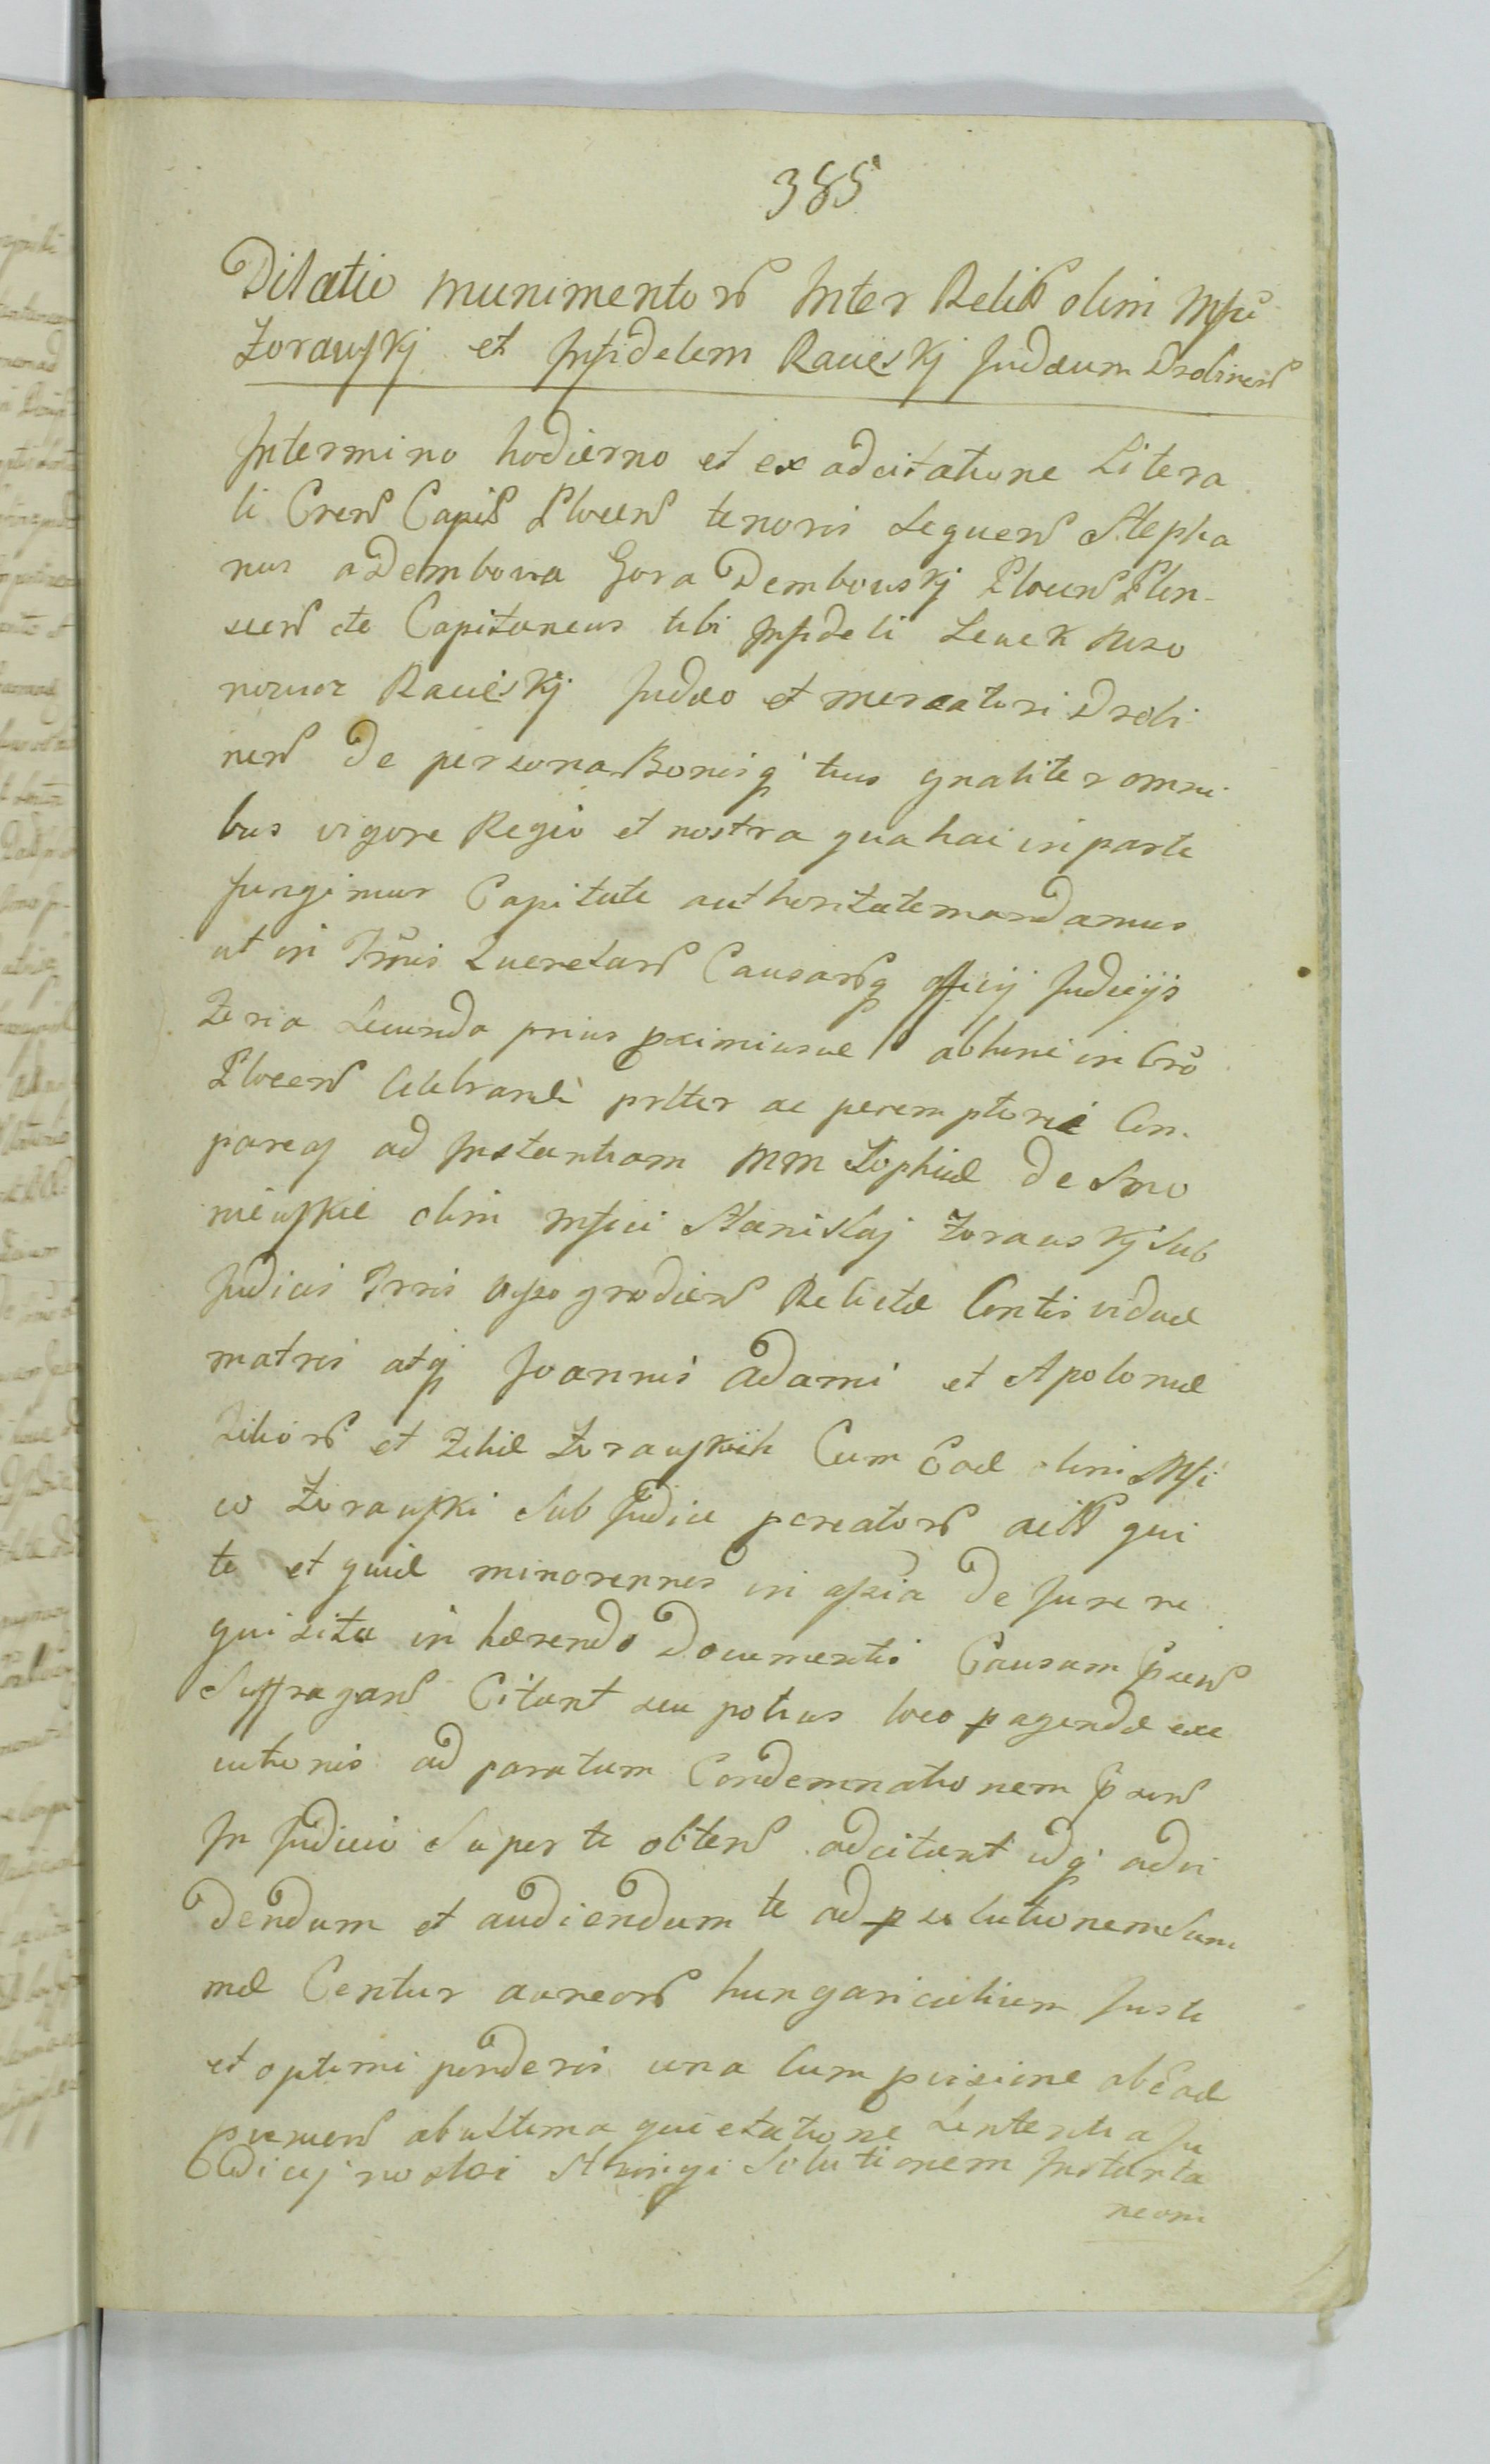 385
Dilatio munimentor Inter Relict olim Mfci
Zorawskj et Infidelem Raciesky Judæum Drobinen
Intermino hodierno et ex adcitatione Litera
li Cren Capit Plocen tenoris sequen Stepha
nus a Dembowa Gora Dembowskj Plocen Plon-
scen etc Capitaneus tibi Infideli Lewek
Racieskij Judæo et mercatori Drobi
nen de persona Bonisq tuis gnaliter omni
bus vigore Regio et nostra qua hac in parte
fungimur Capitali authoritate mandamus
ut in Trnis Querelar Causarq officij Judicijs
Feria secunda prius proximiusve abhinc in Cro
Plocen celebrandi prltr ac peremptorie Com
pareas ad Instantiam MM Zophiæ de Smo
niewskie olim Mfici Stanislaj Zorawskj Sub
Judicis Trris Wyszogrodien Relictæ Contis viduæ
matris atq Joannis Adami et Apoloniæ
Filior et Filiæ Zorawskich Cum Eod olim Mfi
co Zorawski Sub Judice pcreator actt qui
te et quiæ minorennes in assia de Jure re
quisita in hærendo Documentis Causam psen
Suffragan Citant seu potius loco pagendæ exe
cutionis ad paratam Condemnationem psen
In Judicio Super te obten adcitant idq advi
dendum et audiendum te ad psolutionem Sum
mæ Centur aureor hungaricalium Justi
et optimi ponderis una cum pvisione ab ead
pvenien ab ultima quietatione Sententia Ju
dicij nostri Stringi Solutionem Instanta
neam